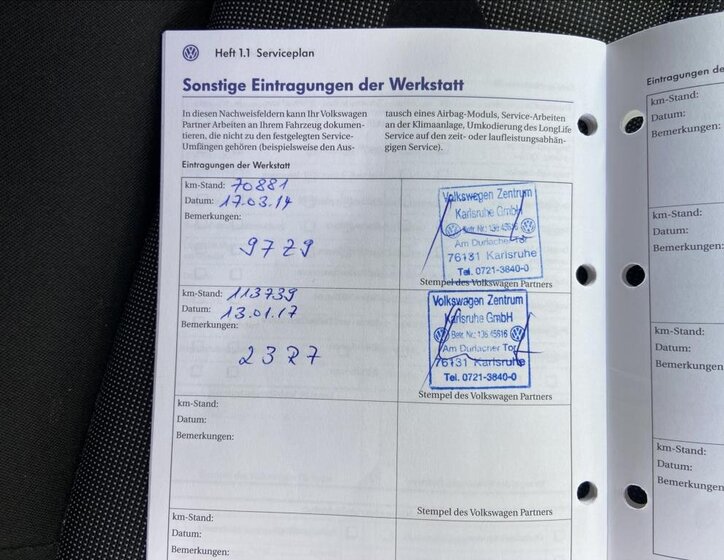 Heft 1.1 Serviceplan
Sonstige Eintragungen der Werkstatt
In diesen Nachweisfeldern kann Ihr Volkswagen
Partner Arbeiten an Ihrem Fahrzeug dokumen-
tieren, die nicht zu den festgelegten Service-
Umfängen gehören (beispielsweise den Aus-
tausch eines Airbag-Moduls, Service-Arbeiten
an der Klimaanlage, Umkodierung des LongLife
Service auf den zeit- oder laufleistungsabhän-
gigen Service).
Eintragungen der Werkstatt
km-Stand: 70881
Datum: 17.03.14
Bemerkungen:
97Z9
Volkswagen Zentrum
Karlsruhe GmbH
Betr. Nr.: 136 45616
Am Durlacher Tor
76131 Karlsruhe
Tel. 0721-3840-0
Stempel des Volkswagen Partners
km-Stand: 113739
Datum: 13.01.17
Bemerkungen:
23R7
Volkswagen Zentrum
Karlsruhe GmbH
Betr. Nr.: 136 45616
Am Durlacher Tor
76131 Karlsruhe
Tel. 0721-3840-0
Stempel des Volkswagen Partners
km-Stand:
Datum:
Bemerkungen:
Stempel des Volkswagen Partners
km-Stand:
Datum:
Bemerkungen:
Eintragungen de
km-Stand:
Datum:
Bemerkungen:
km-Stand:
Datum:
Bemerkungen:
km-Stand:
Datum:
Bemerkungen
km-Stand:
Datum:
Bemerkungen